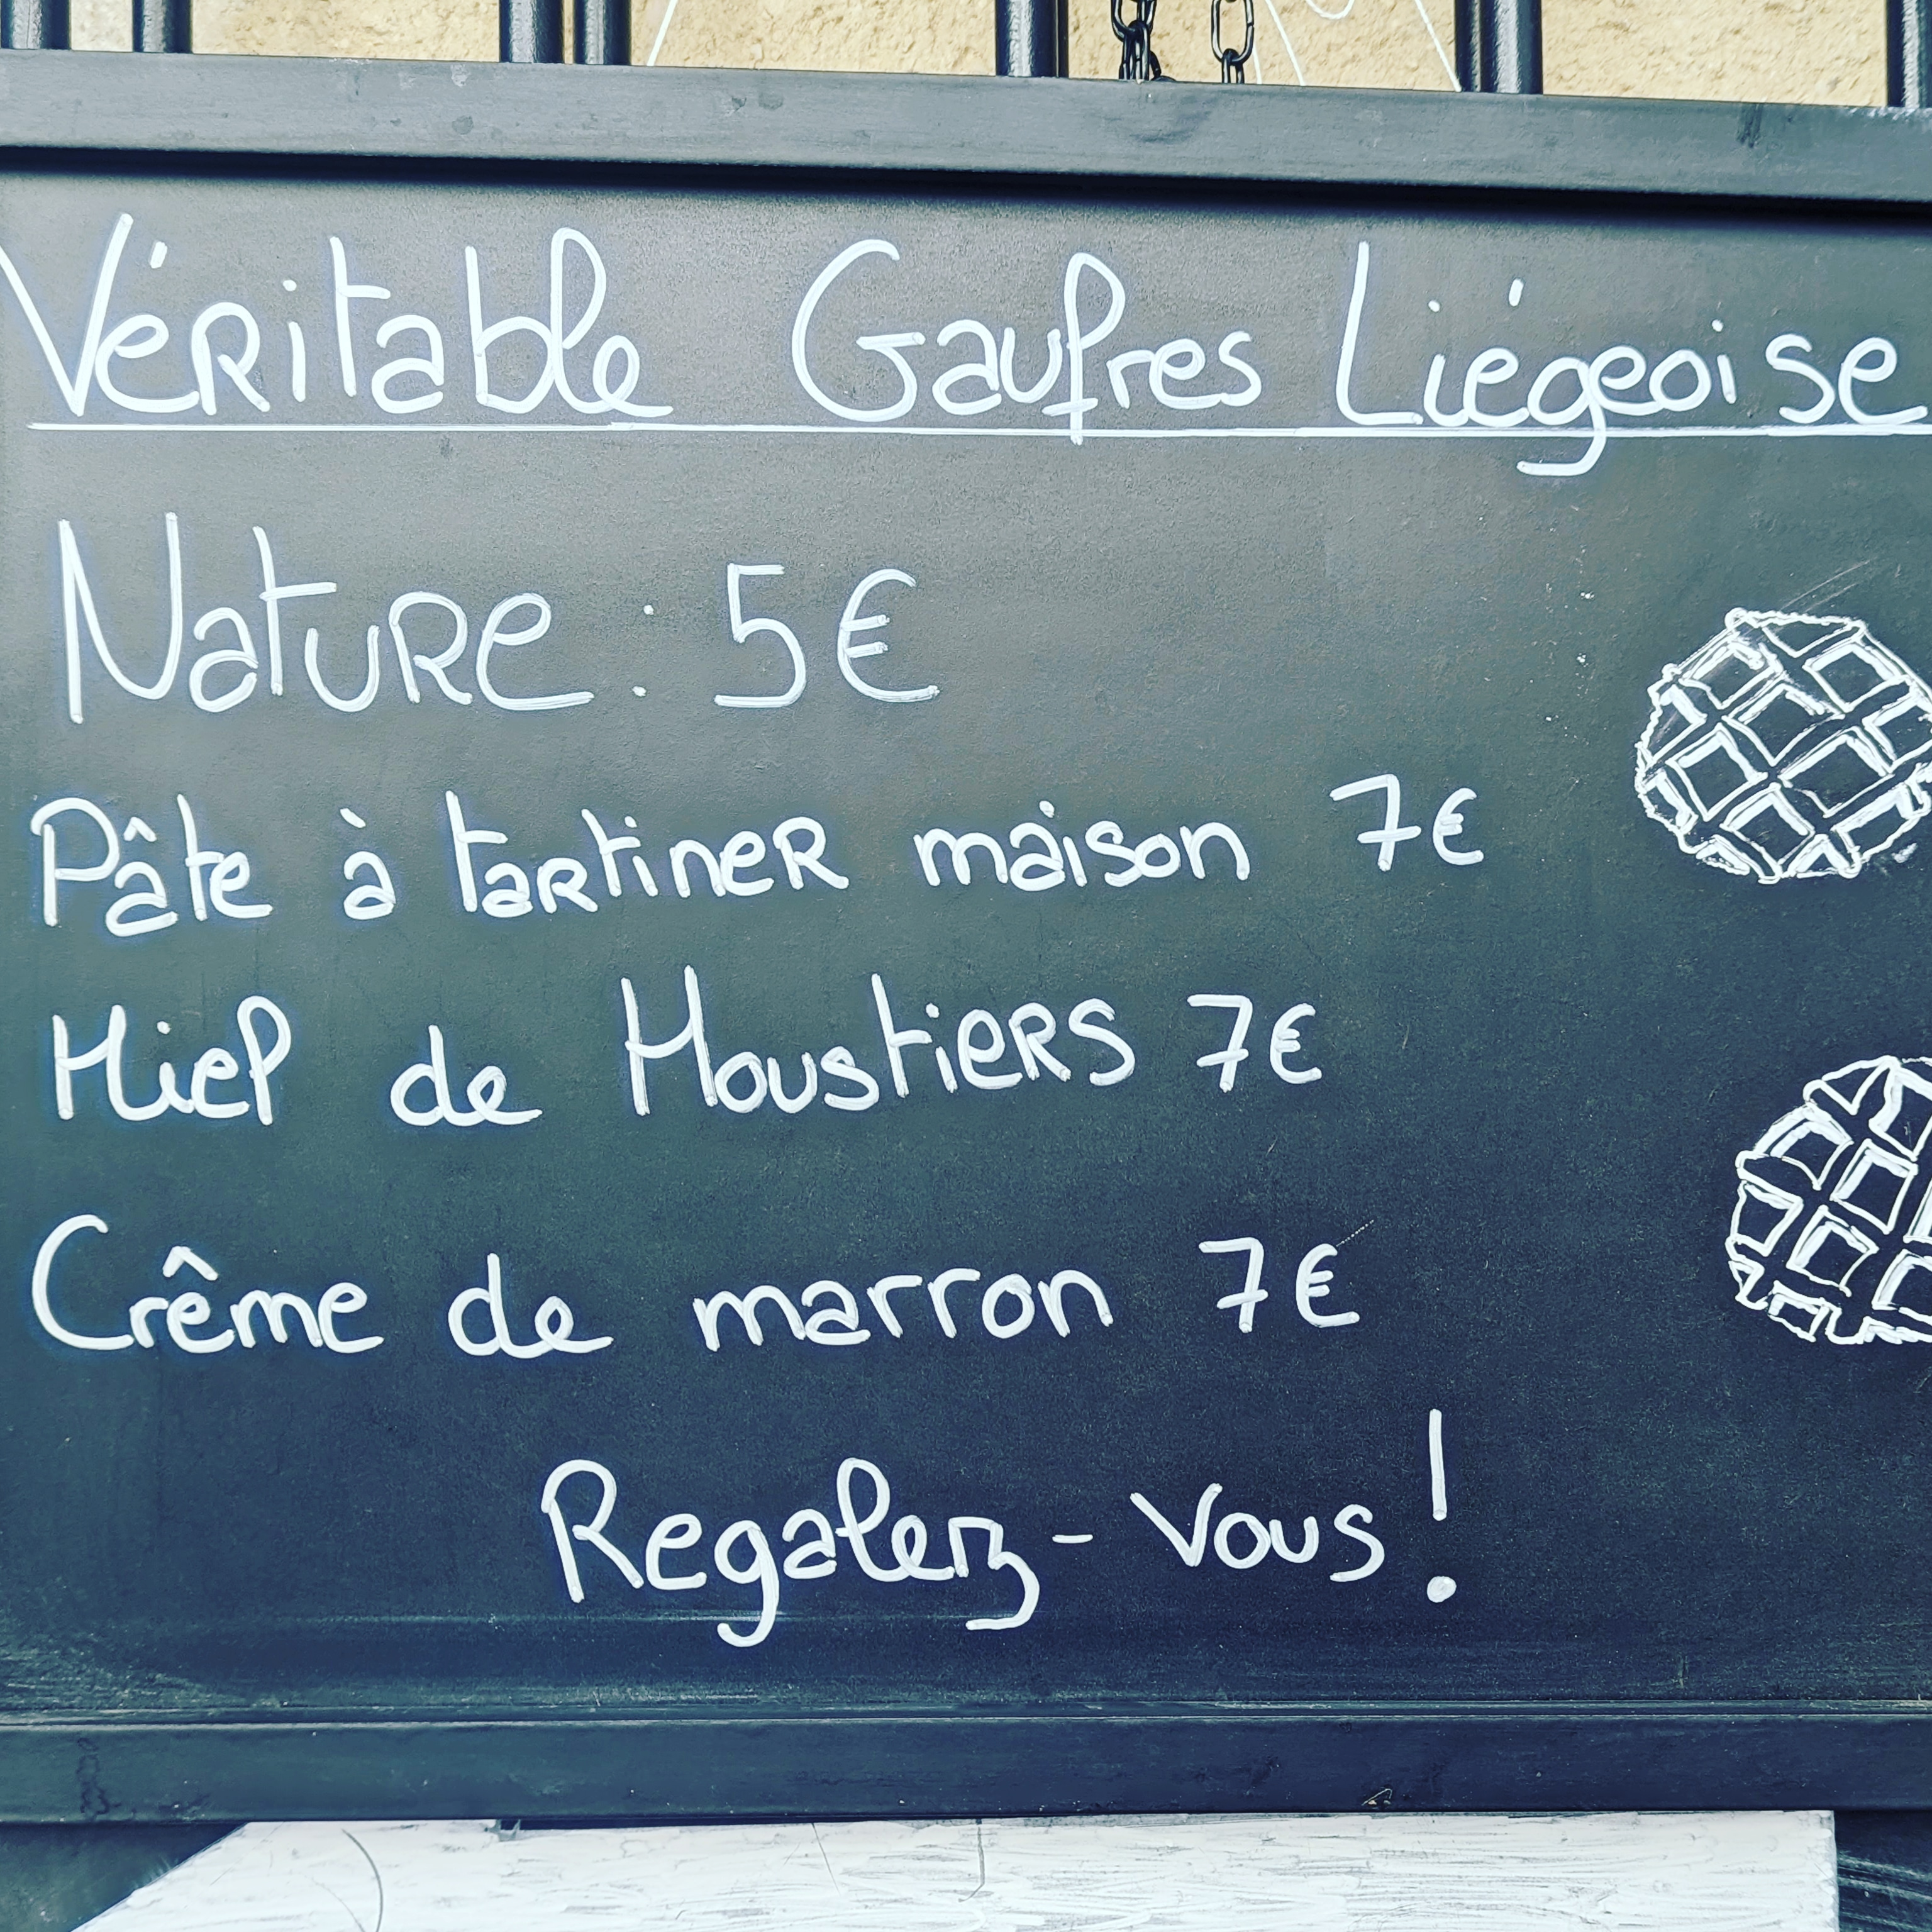 Véritable Gaufres Liégeoise
Nature : 5€
Pâte à tartiner maison 7€
Miel de Moustiers 7€
Crême de marron 7€
Regalez-vous !